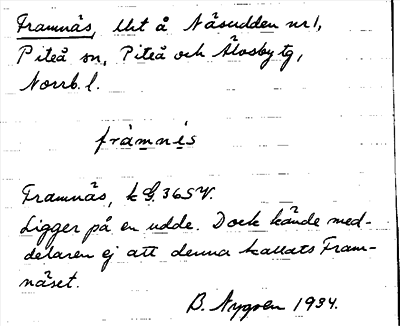 Framnäs, lht å Näsudden nr 1,
Piteå sn, Piteå och Älvsby tg,
Norrb. l.
fràmnis
Framnäs, k G. 365 V.
Ligger på en udde. Dock kände med-
delaren ej att denna kallats Fram-
näset.
B. Nygren 1934.